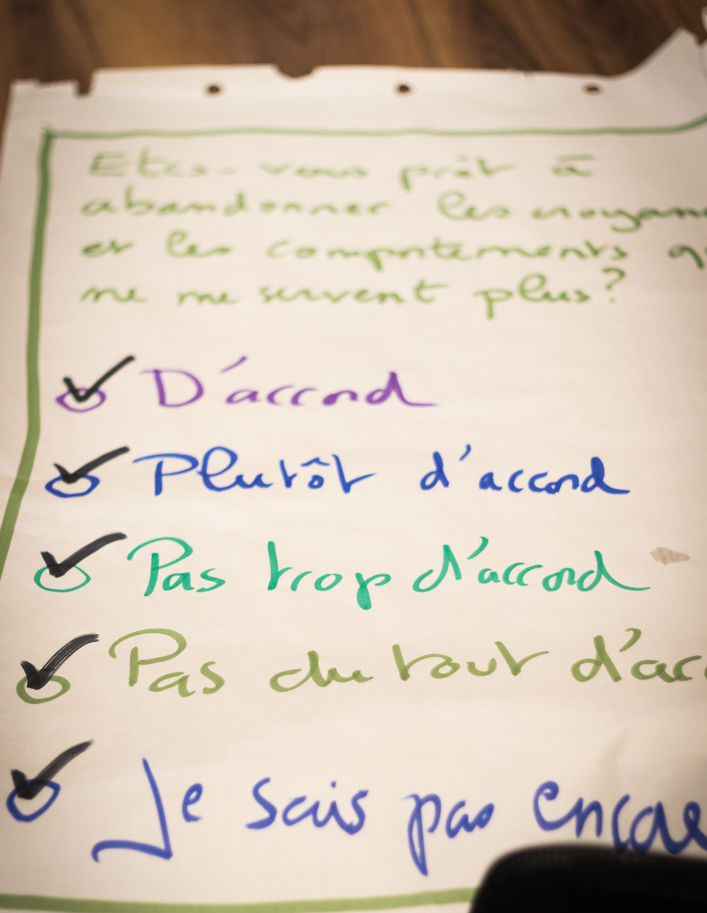 Etes-vous prêt à
abandonner les croyan
et les comportements q
ne me servent plus?
D'accord
Plutôt d'accord
Pas trop d'accord
Pas du tout d'acc
Je sais pas encore